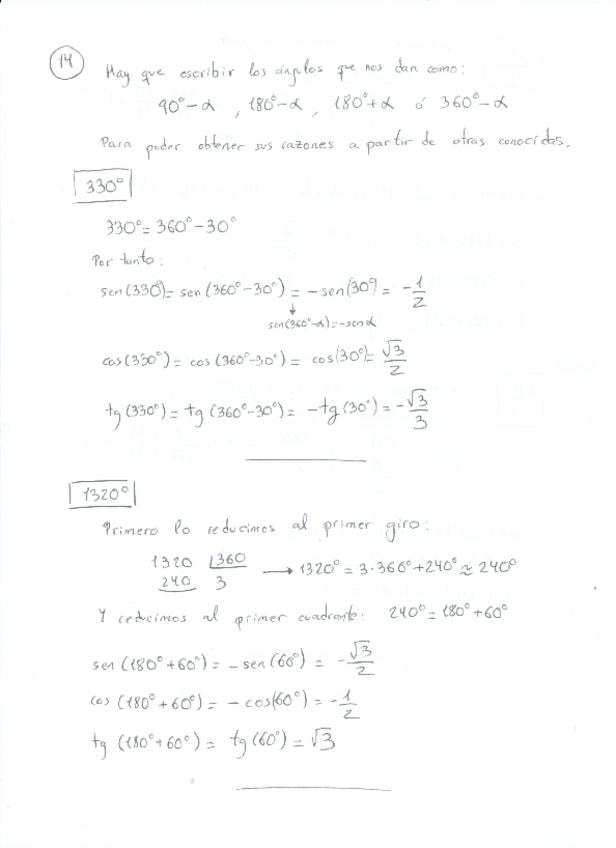 14
Hay que escribir los ángulos que nos dan como:
90°-α , 180°-α , 180°+α ó 360°-α
Para poder obtener sus razones a partir de otras conocidas.
330°
330° = 360° - 30°
Por tanto:
sen(330°) = sen(360°-30°) = -sen(30°) = -1/2
↓
sen(360°-α)=-senα
cos(330°) = cos(360°-30°) = cos(30°) = √3/2
tg(330°) = tg(360°-30°) = -tg(30°) = -√3/3
1320°
Primero lo reducimos al primer giro:
1320 360
240 3 → 1320° = 3·360° + 240° ≈ 240°
Y reducimos al primer cuadrante: 240° = 180° + 60°
sen (180°+60°) = -sen(60°) = -√3/2
cos (180°+60°) = -cos(60°) = -1/2
tg (180°+60°) = tg(60°) = √3